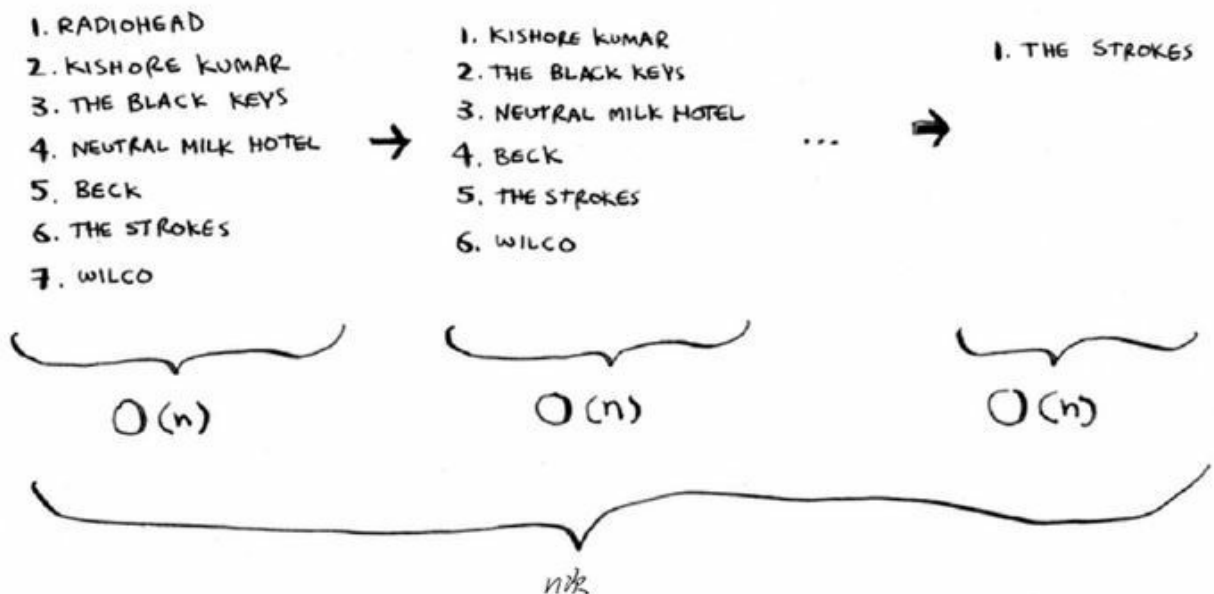 1. RADIOHEAD
2. KISHORE KUMAR
3. THE BLACK KEYS
4. NEUTRAL MILK HOTEL
5. BECK
6. THE STROKES
7. WILCO
→
1. KISHORE KUMAR
2. THE BLACK KEYS
3. NEUTRAL MILK HOTEL
4. BECK
5. THE STROKES
6. WILCO
... →
1. THE STROKES
O(n)
O(n)
O(n)